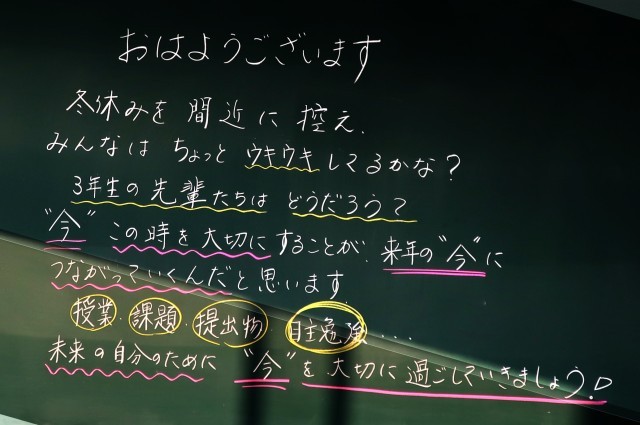 おはようございます
冬休みを 間近に 控え、
みんなは ちょっと ウキウキしてるかな?
3年生の先輩たちは どうだろう?
"今" この時を大切にすることが、来年の"今"に
つながっていくんだと思います。
授業、課題、提出物、自主勉強、...
未来の自分のために "今"を大切に過ごしていきましょう!